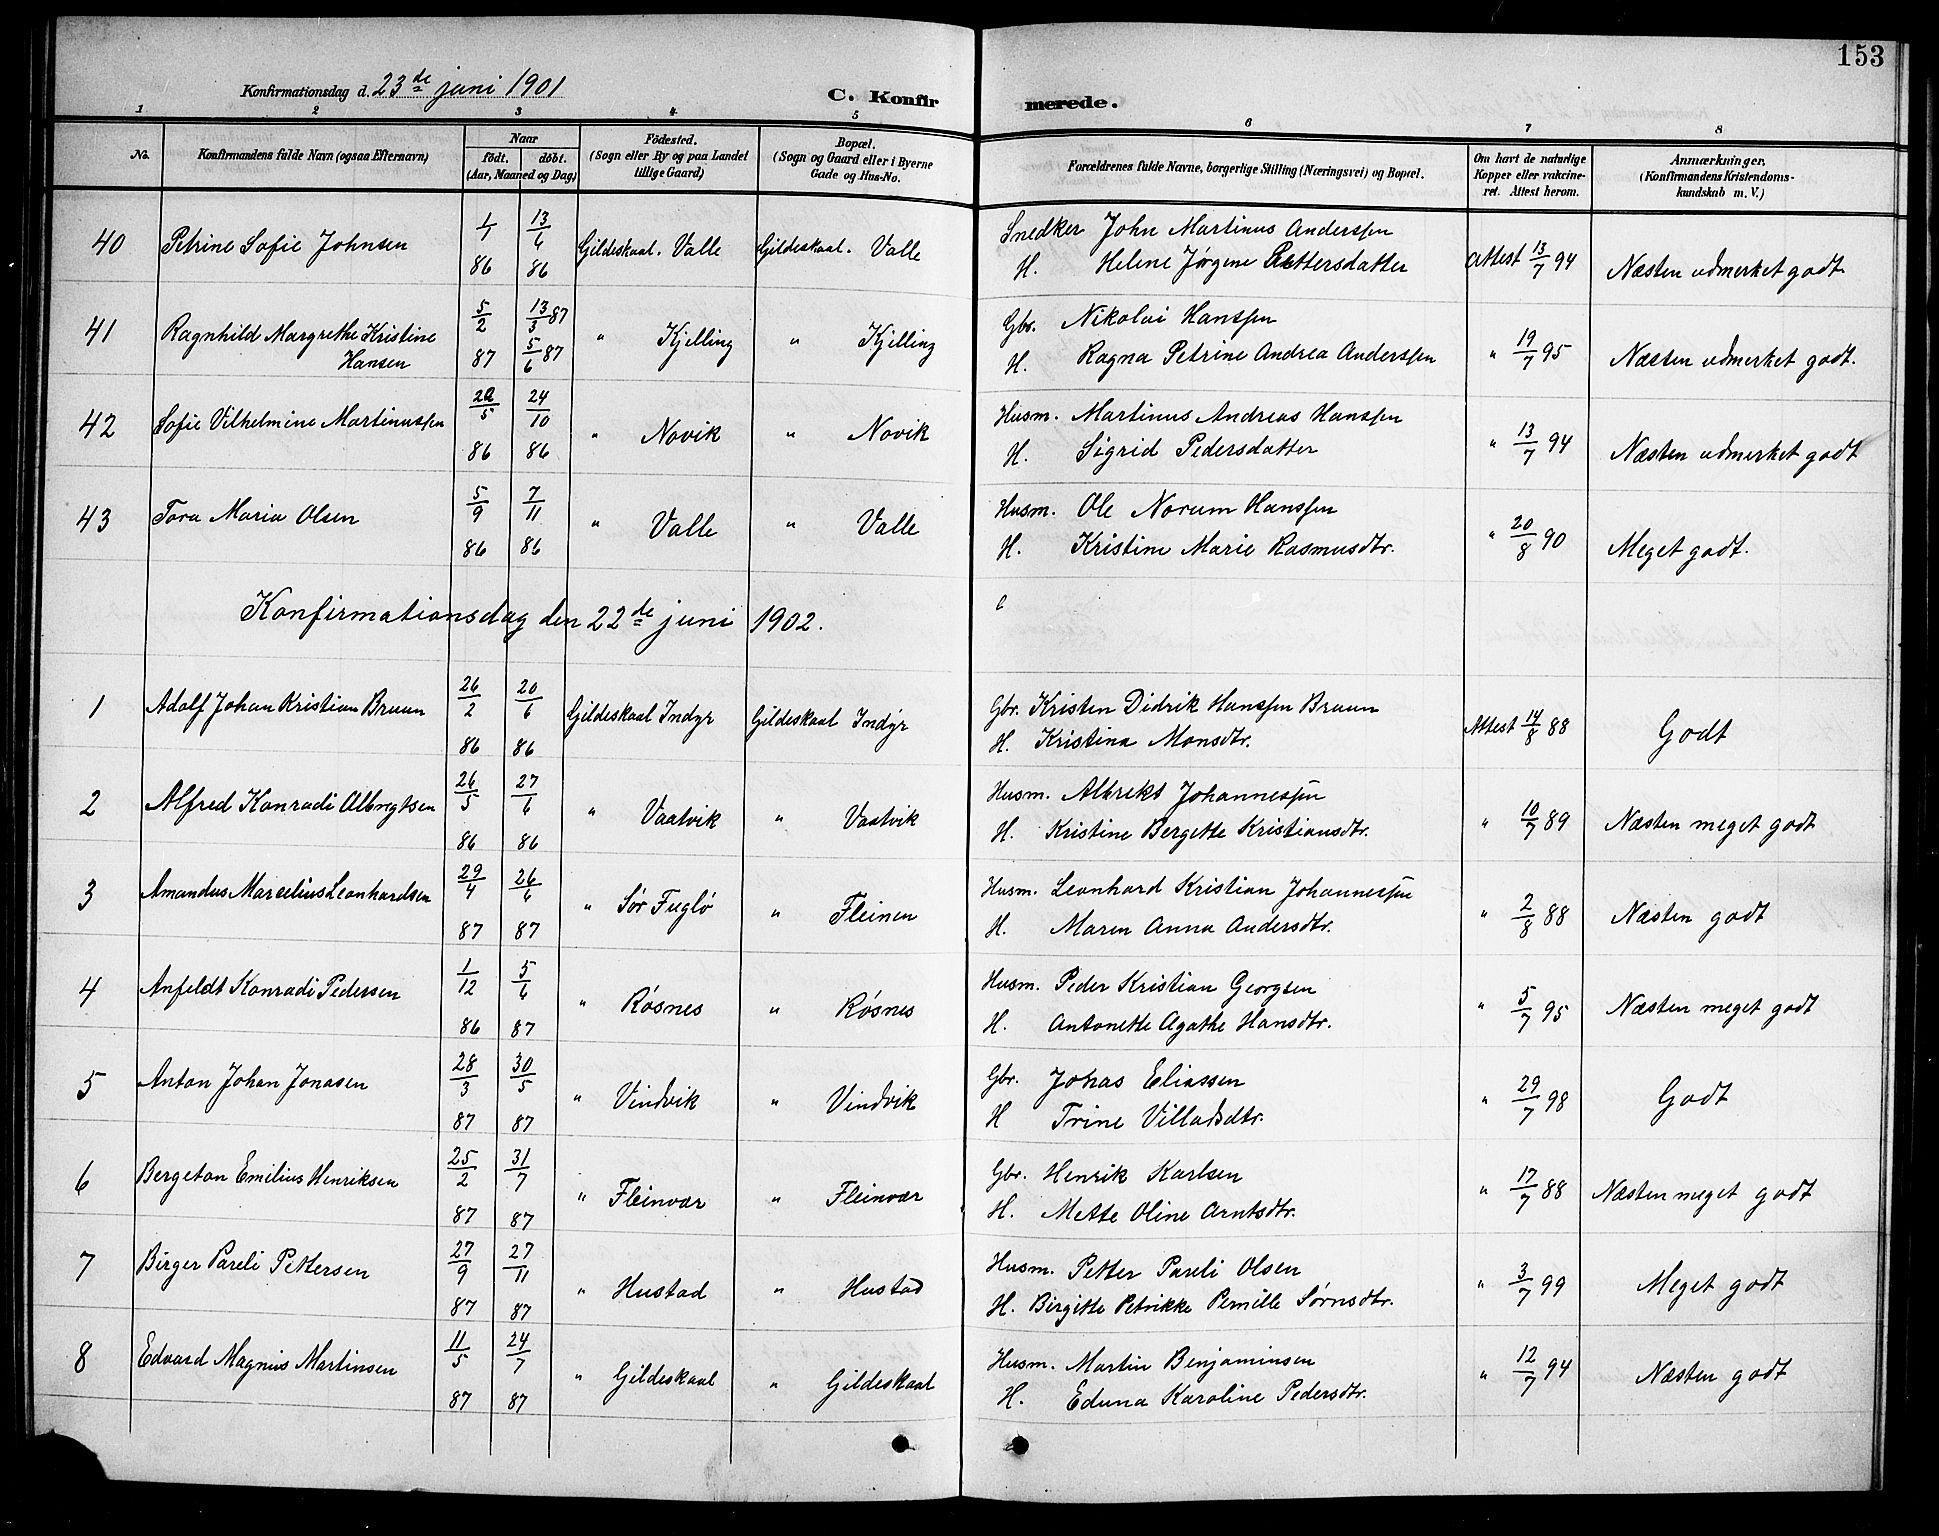 153
Konfirmationsdag d. 23de juni 1901
C. Konfirmerede.
1 2 3 4 5 6 7 8
No. | Konfirmandens fulde Navn (ogsaa Efternavn) | Naar født. døbt. (Aar, Maaned og Dag) | Fødested. (Sogn eller By og paa Landet tillige Gaard) | Bopæl. (Sogn og Gaard eller i Byerne Gade og Hus-No. | Forældrenes fulde Navne, borgerlige Stilling (Næringsvei) og Bopæl. | Om havt de naturlige Kopper eller vakcineret. Attest herom. | Anmærkninger, (Konfirmandens Kristendomskundskab m. V.)
40 Petrine Sofie Johnsen 1/1 86 13/6 86 Gildeskaal. Valle Gildeskaal. Valle Snedker John Martinus Anderssen
H. Helene Jørgine Pettersdatter Attest 13/7 94 Næsten udmerket godt.
41 Ragnhild Margrethe Kristine Hansen 5/2 87 13/3 87 5/6 87 " Kjelling " Kjelling Gbr. Nikolai Hanssen
H. Ragna Petrine Andrea Anderssen " 19/7 95 Næsten udmerket godt.
42 Sofie Vilhelmine Martinussen 22/5 86 24/10 86 " Novik " Novik Husm. Martinus Andreas Hanssen
H. Sigrid Pedersdatter " 13/7 94 Næsten udmerket godt
43 Tora Maria Olsen 5/9 86 7/11 86 " Valle " Valle Husm. Ole Norum Hanssen
H. Kristine Marie Rasmusdtr. " 20/8 90 Meget godt.
Konfirmationsdag den 22de juni 1902.
1 Adolf Johan Kristian Bruun 26/2 86 20/6 86 Gildeskaal Indyr Gildeskaal Indyr Gbr. Kristen Didrik Hanssen Bruun
H. Kristina Monsdtr. Attest 14/8 88 Godt
2 Alfred Konradi Albregtsen 26/5 86 27/6 86 " Vaatvik " Vaatvik Husm. Albrekt Johannessen
H. Kristine Bergette Kristiansdtr. " 10/7 89 Næsten meget godt
3 Amandus Marcelius Leonhardsen 29/4 87 26/6 87 " Sør Fuglø " Fleinen Husm. Leonhard Kristian Johannessen
H. Maren Anna Andersdtr. " 2/8 88 Næsten godt
4 Anfeldt Konradi Pedersen 1/12 86 5/6 87 " Røsnes " Røsnes Husm. Peder Kristian Georgsen
H. Antonette Agathe Hansdtr. " 5/7 95 Næsten meget godt
5 Anton Johan Jonasen 28/3 87 30/5 87 " Vindvik " Vindvik Gbr. Johas Eliassen
H Trine Villadsdtr. " 29/7 98 Godt
6 Bergeton Emilius Henriksen 25/2 87 31/7 87 " Fleinvær " Fleinvær Gbr. Henrik Karlsen
H. Mette Oline Arntsdtr. " 17/7 88 Næsten meget godt
7 Birger Pareli Pettersen 27/9 87 27/11 87 " Hustad " Hustad Husm. Petter Pareli Olsen
H. Birgitte Petrikke Pernille Sørnsdtr. " 3/7 99 Meget godt
8 Edvard Magnus Martinsen 11/5 87 24/7 87 " Gildeskaal " Gildeskaal Husm. Martin Benjaminsen
H. Eduna Karoline Pedersdtr. " 12/7 94 Næsten godt